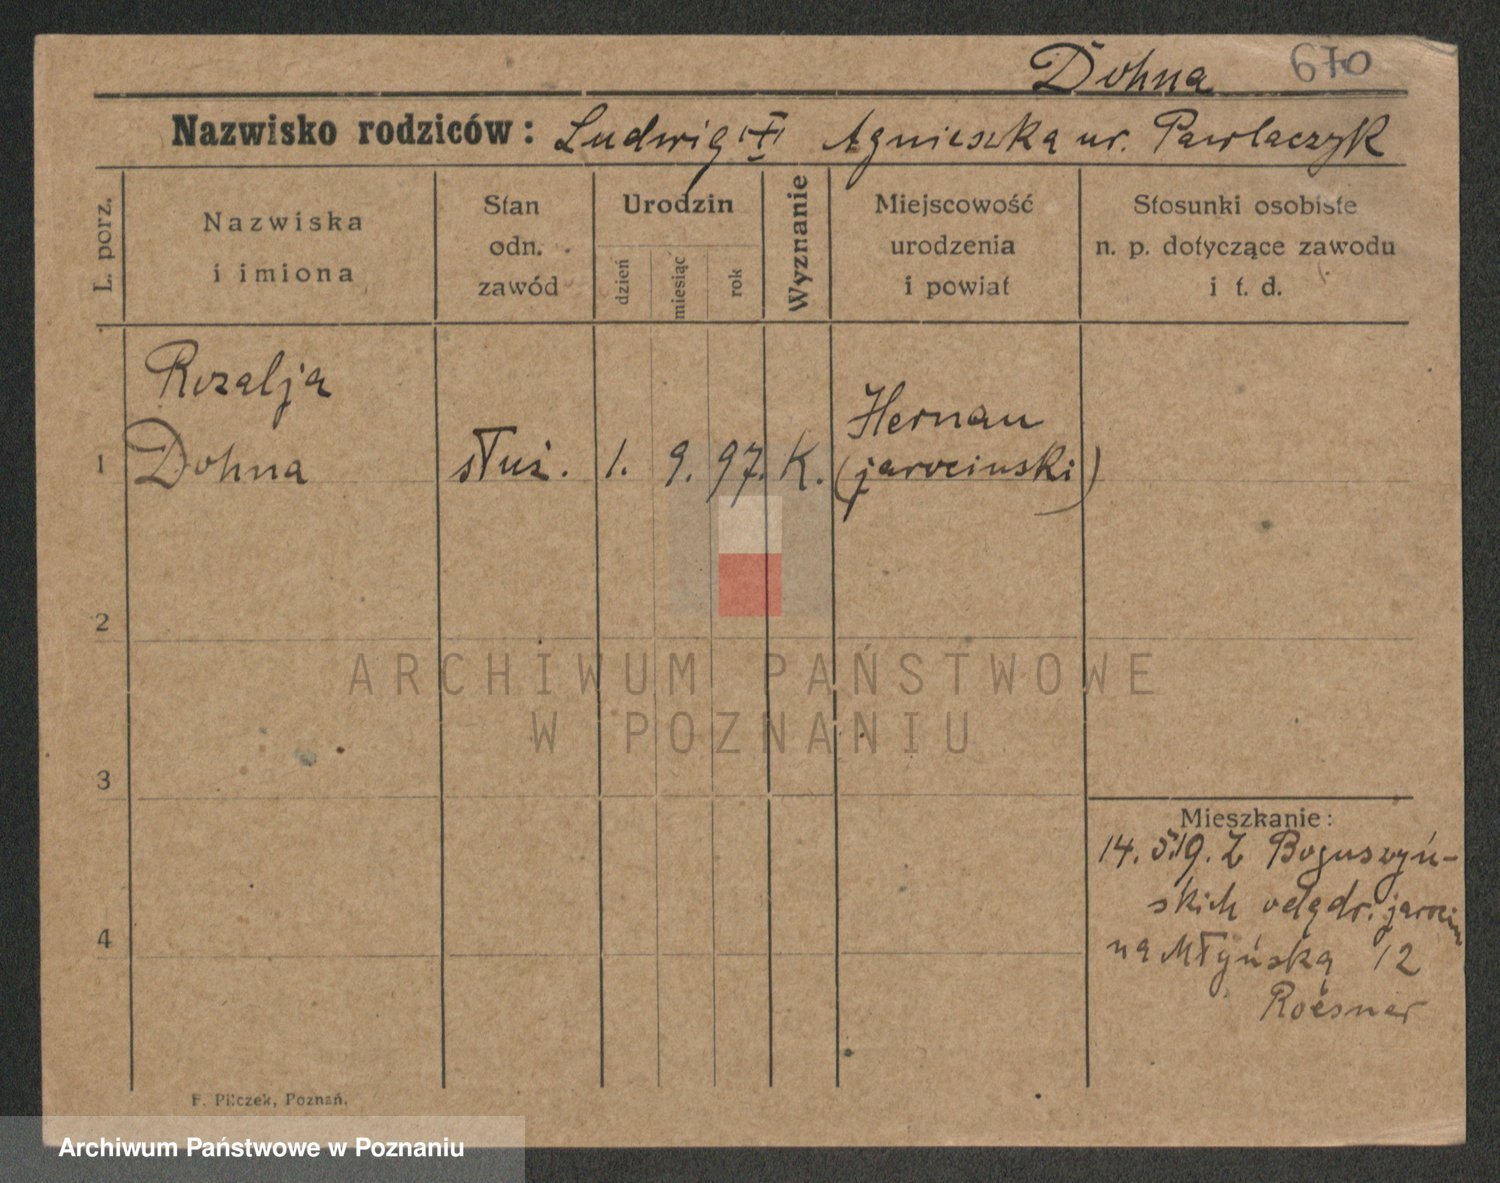 Dohna 670
Nazwisko rodziców: Ludwig (+) Agnieszka ur. Pawlaczyk
L. porz.
Nazwiska
i imiona
Stan
odn.
zawód
Urodzin
dzień
miesiąc
rok
Wyznanie
Miejscowość
urodzenia
i powiat
Stosunki osobiste
n. p. dotyczące zawodu
i t. d.
Rozalja
1 Dohna służ. 1. 9. 97. K. Hernau
(jarocinski)
2
3
4
Mieszkanie:
14. 5.19. Z Boguszyń-
skich jarocin
na Młyńską 12
Roesner
F. Pilczek, Poznań.
ARCHIWUM PAŃSTWOWE
W POZNANIU
Archiwum Państwowe w Poznaniu